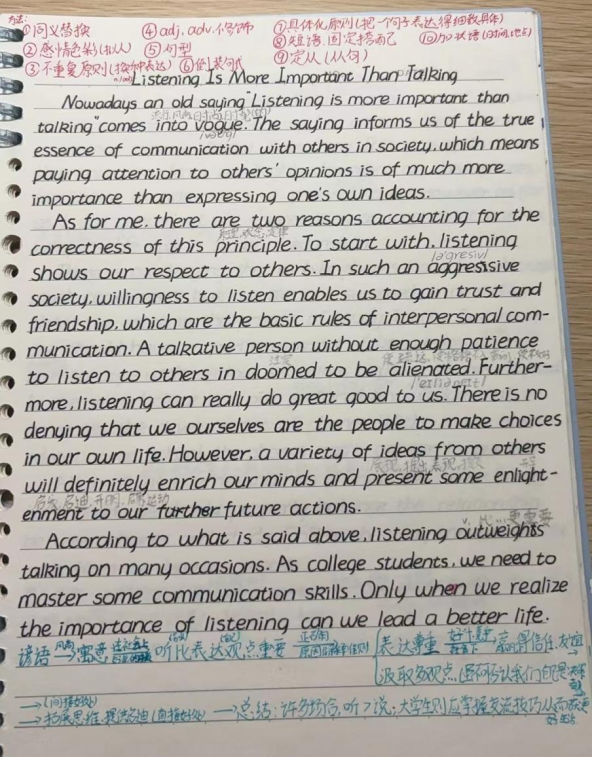 方法:
①同义替换 ④adj, adv.修饰 ⑦具体化原则(把一个句子表达得细致具体)
②感情色彩(拟人) ⑤句型 ⑧短语,固定搭配 ⑩加状语(时间,地点)
③不重复原则(换种表达) ⑥倒装句式 ⑨定从(从句)
Listening Is More Important Than Talking
Nowadays an old saying "Listening is more important than
talking" comes into vogue. The saying informs us of the true
essence of communication with others in society, which means
paying attention to others' opinions is of much more
importance than expressing one's own ideas.
As for me, there are two reasons accounting for the
correctness of this principle. To start with, listening
/ə'gresiv/
shows our respect to others. In such an aggressive
society, willingness to listen enables us to gain trust and
friendship, which are the basic rules of interpersonal com-
munication. A talkative person without enough patience
to listen to others in doomed to be alienated. Further-
more, listening can really do great good to us. There is no
denying that we ourselves are the people to make choices
in our own life. However, a variety of ideas from others
will definitely enrich our minds and present some enlight-
enment to our further future actions.
更重要
According to what is said above, listening outweights
talking on many occasions. As college students, we need to
master some communication skills. Only when we realize
the importance of listening can we lead a better life.
谚语 → 寓意 听比表达观点重要 表达尊重 → 赢得信任,友谊
汲取多观点
→ (间接好处)
→ 拓展思维,提供启迪(直接好处) → 总结:许多场合,听>说;大学生则应掌握交流技巧从而获更
好生活